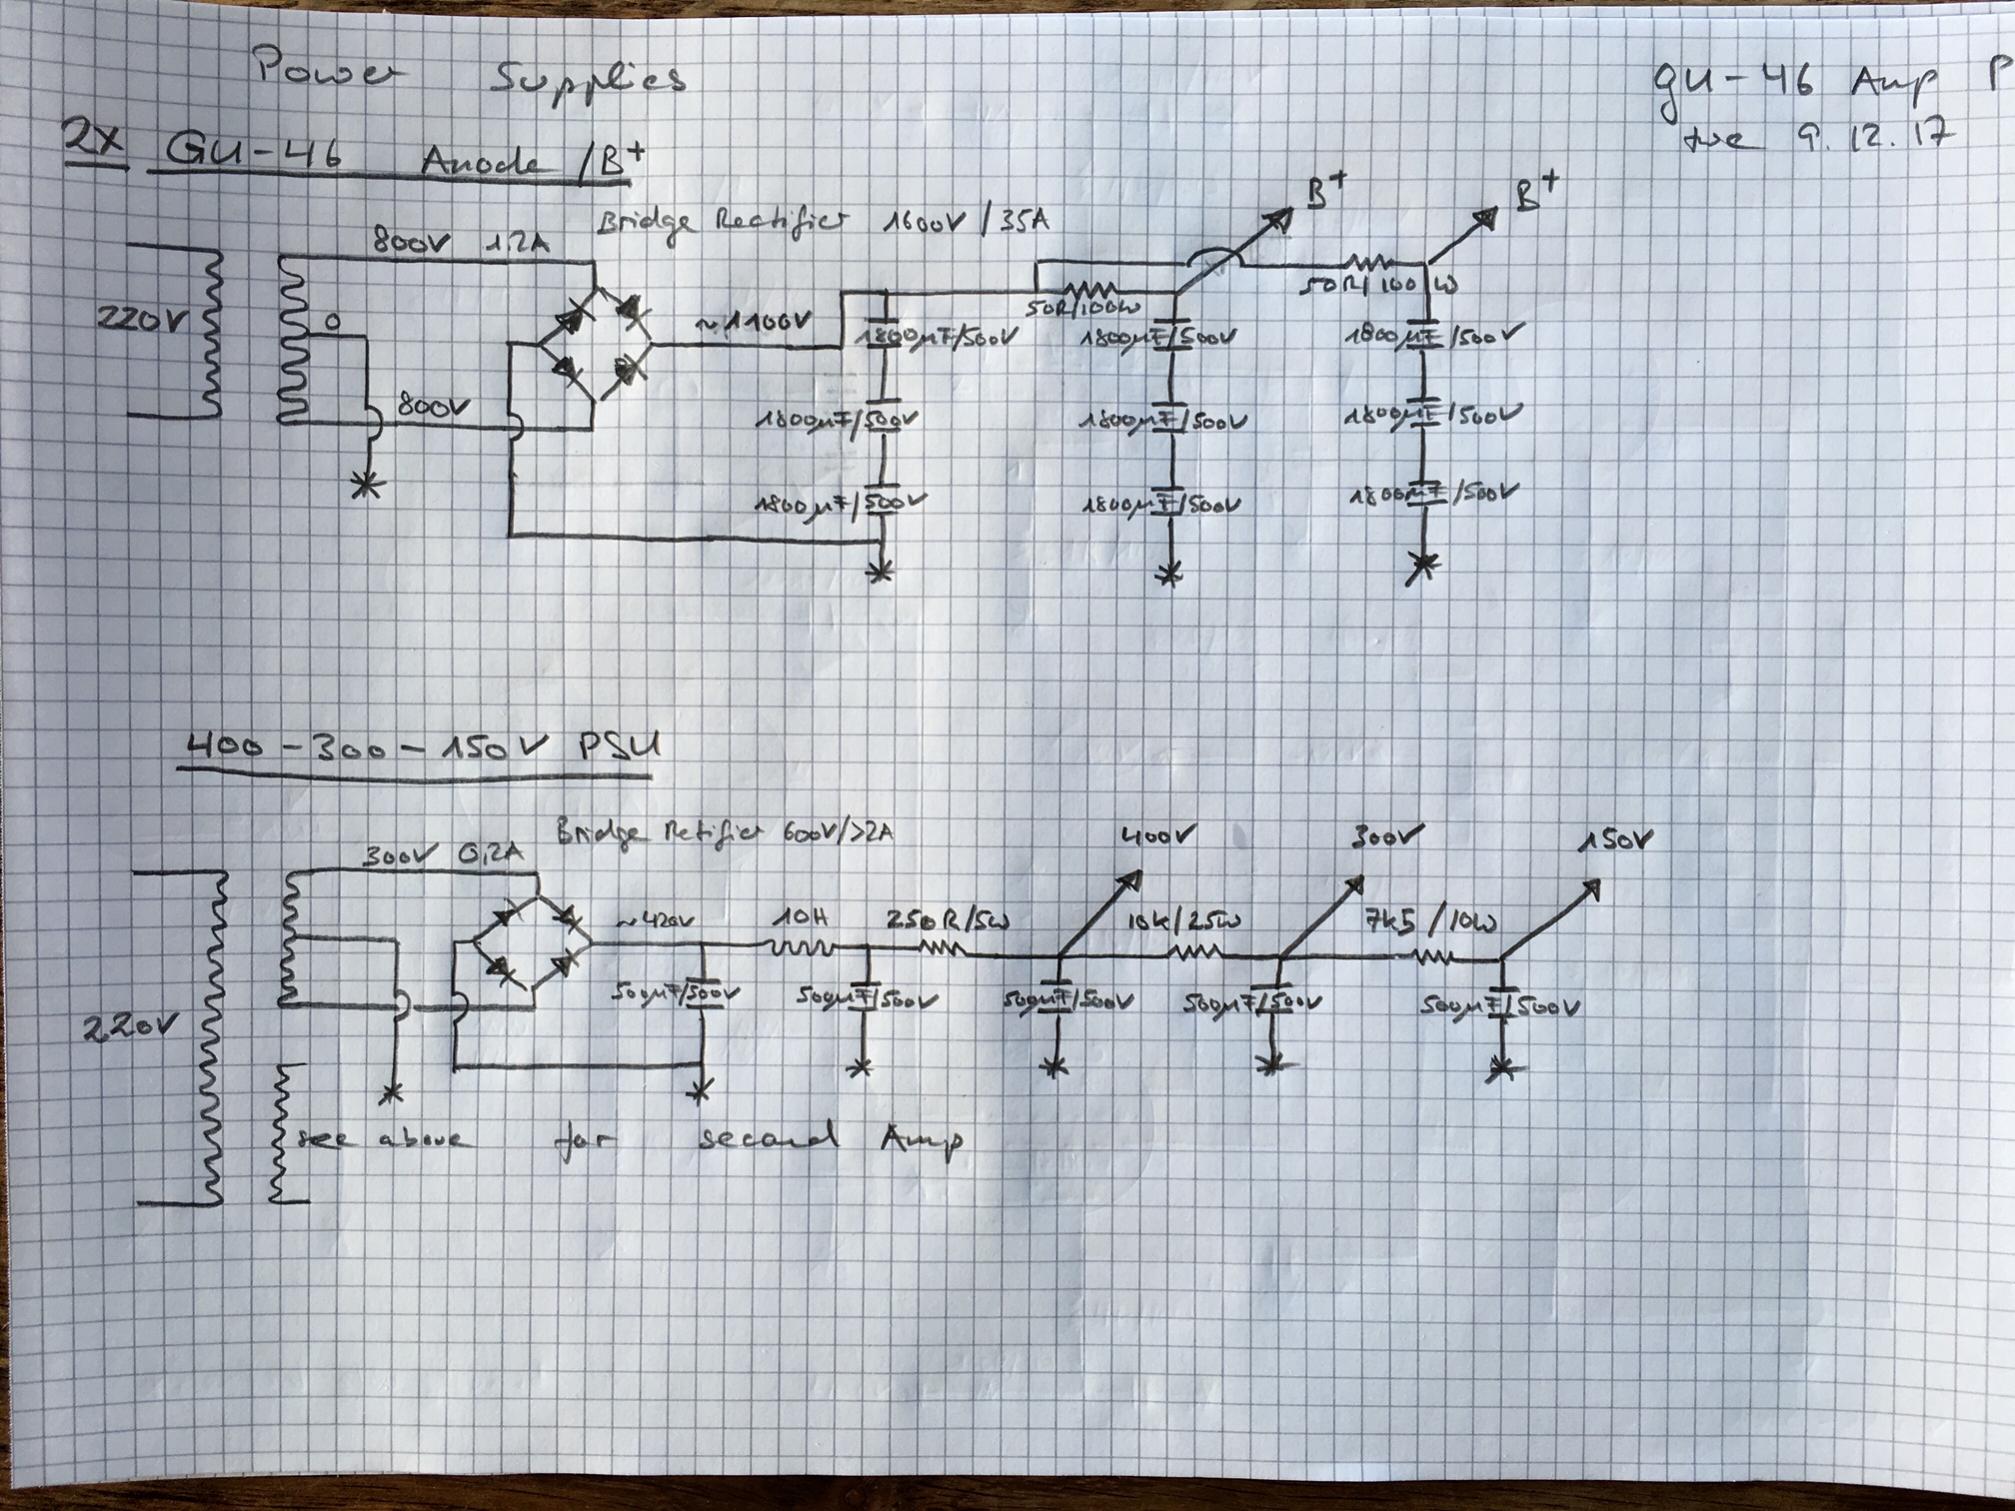 Power Supplies
GU-46 Amp P
9.12.17
2X GU-46 Anode /B+
Bridge Rectifier 1600V / 35A
B+
B+
800V 1.2A
220V
0
~1100V
50R/100W
50R/100W
1800µF/500V
1800µF/500V
1800µF/500V
800V
1800µF/500V
1800µF/500V
1800µF/500V
1800µF/500V
1800µF/500V
1800µF/500V
400-300-150V PSU
Bridge Retifier 600V/>2A
400V
300V
150V
300V 0,2A
~420V
10H
250R/5W
10k/25W
7k5/10W
500µF/500V
500µF/500V
500µF/500V
500µF/500V
500µF/500V
220V
see above for second Amp